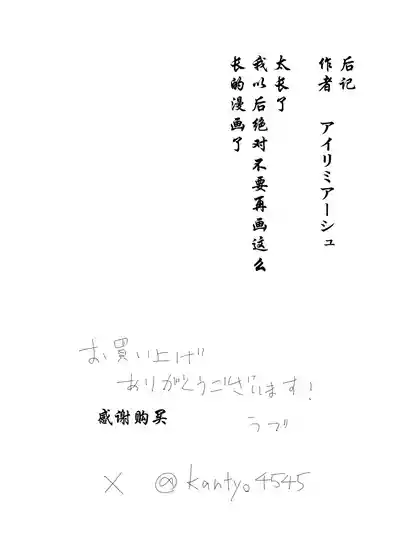 后记
作者 アイリミアーシュ
太长了
我以后绝对不要再画这么
长的漫画了
お買い上げ
ありがとうございます!
感谢购买
うづ
X @kantyo4545